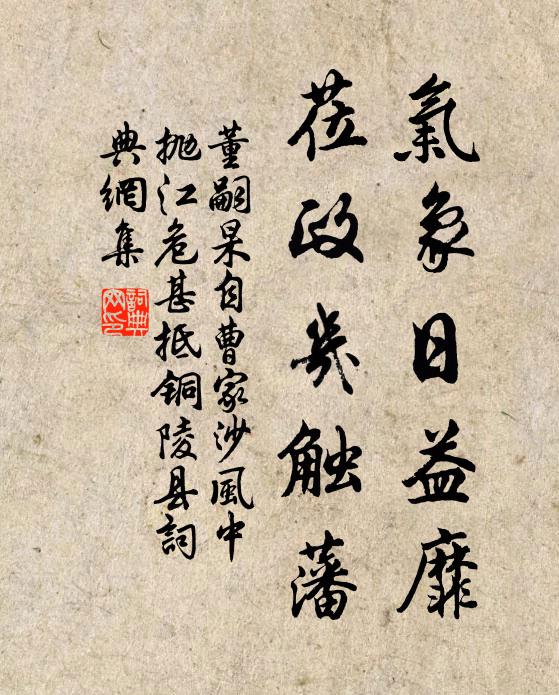 氣象日益靡
莅政岁触藩
董嗣杲自曹家沙風中
抛江危甚抵铜陵县詞
典網集
詞典
网印